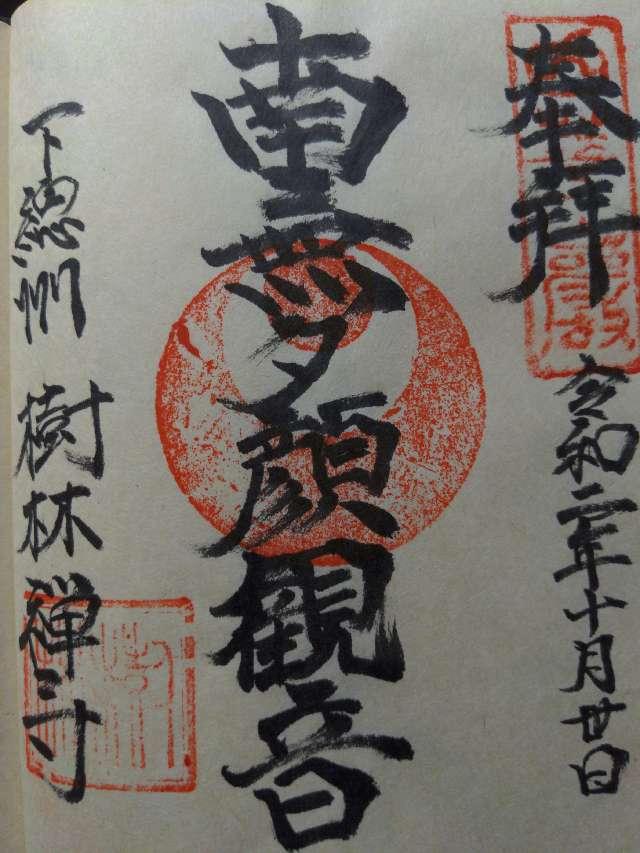 奉拝
令和二年十月廿日
南無夕顔観音
下總州 樹林禅寺